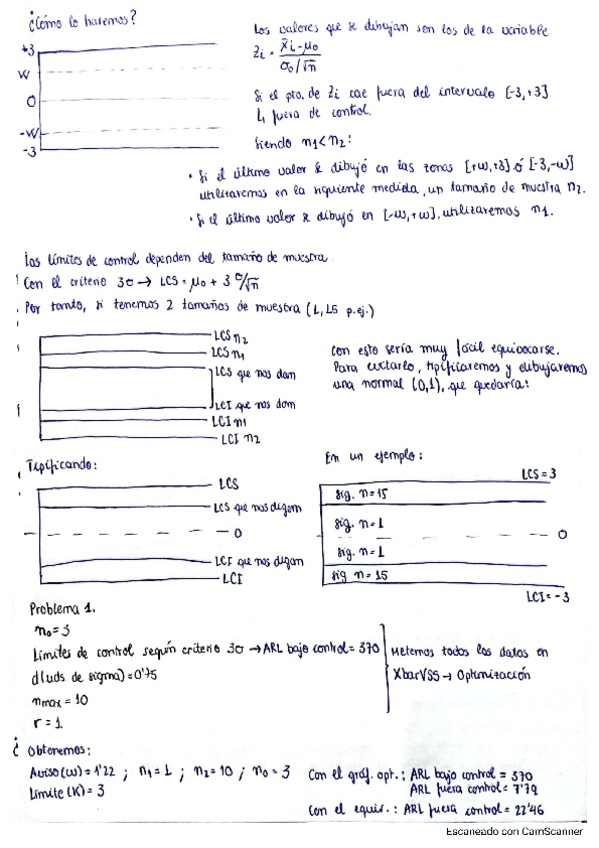 ¿Cómo lo haremos?
+3
W
0
-W
-3
Los valores que se dibujan son los de la variable
Zi = X̄i-μ0 / σ0/√n
Si el pto. de Zi cae fuera del intervalo [-3,+3]
↳ fuera de control.
Siendo n1<n2:
· Si el último valor se dibujó en las zonas [+w,+3] ó [-3,-w]
utilizaremos en la siguiente medida, un tamaño de muestra n2.
· Si el último valor se dibujó en [-w,+w], utilizaremos n1.
Los límites de control dependen del tamaño de muestra.
Con el criterio 3σ → LCS = μ0 + 3 σ/√n
Por tanto, si tenemos 2 tamaños de muestra (1,15 p.ej.)
LCS n2
LCS n1
LCS que nos dan
LCI que nos dan
LCI n1
LCI n2
Con esto sería muy fácil equivocarse.
Para evitarlo, tipificaremos y dibujaremos
una normal (0,1), que quedaría:
Tipificando:
LCS
LCS que nos digan
0
LCI que nos digan
LCI
En un ejemplo:
LCS = 3
sig. n=15
sig. n=1
0
sig. n=1
sig n=15
LCI = -3
Problema 1.
n0=3
Límites de control según criterio 3σ → ARL bajo control = 370
d(uds. de sigma) = 0'75
nmax = 10
r = 1
Metemos todos los datos en
XbarVSS → Optimización
Obtenemos:
Aviso (w) = 1'22 ; n1 = 1 ; n2 = 10 ; n0 = 3
Límite (K) = 3
Con el gráf. opt. : ARL bajo control = 370
ARL fuera control = 7'79
Con el equiv. : ARL fuera control = 22'46
Escaneado con CamScanner